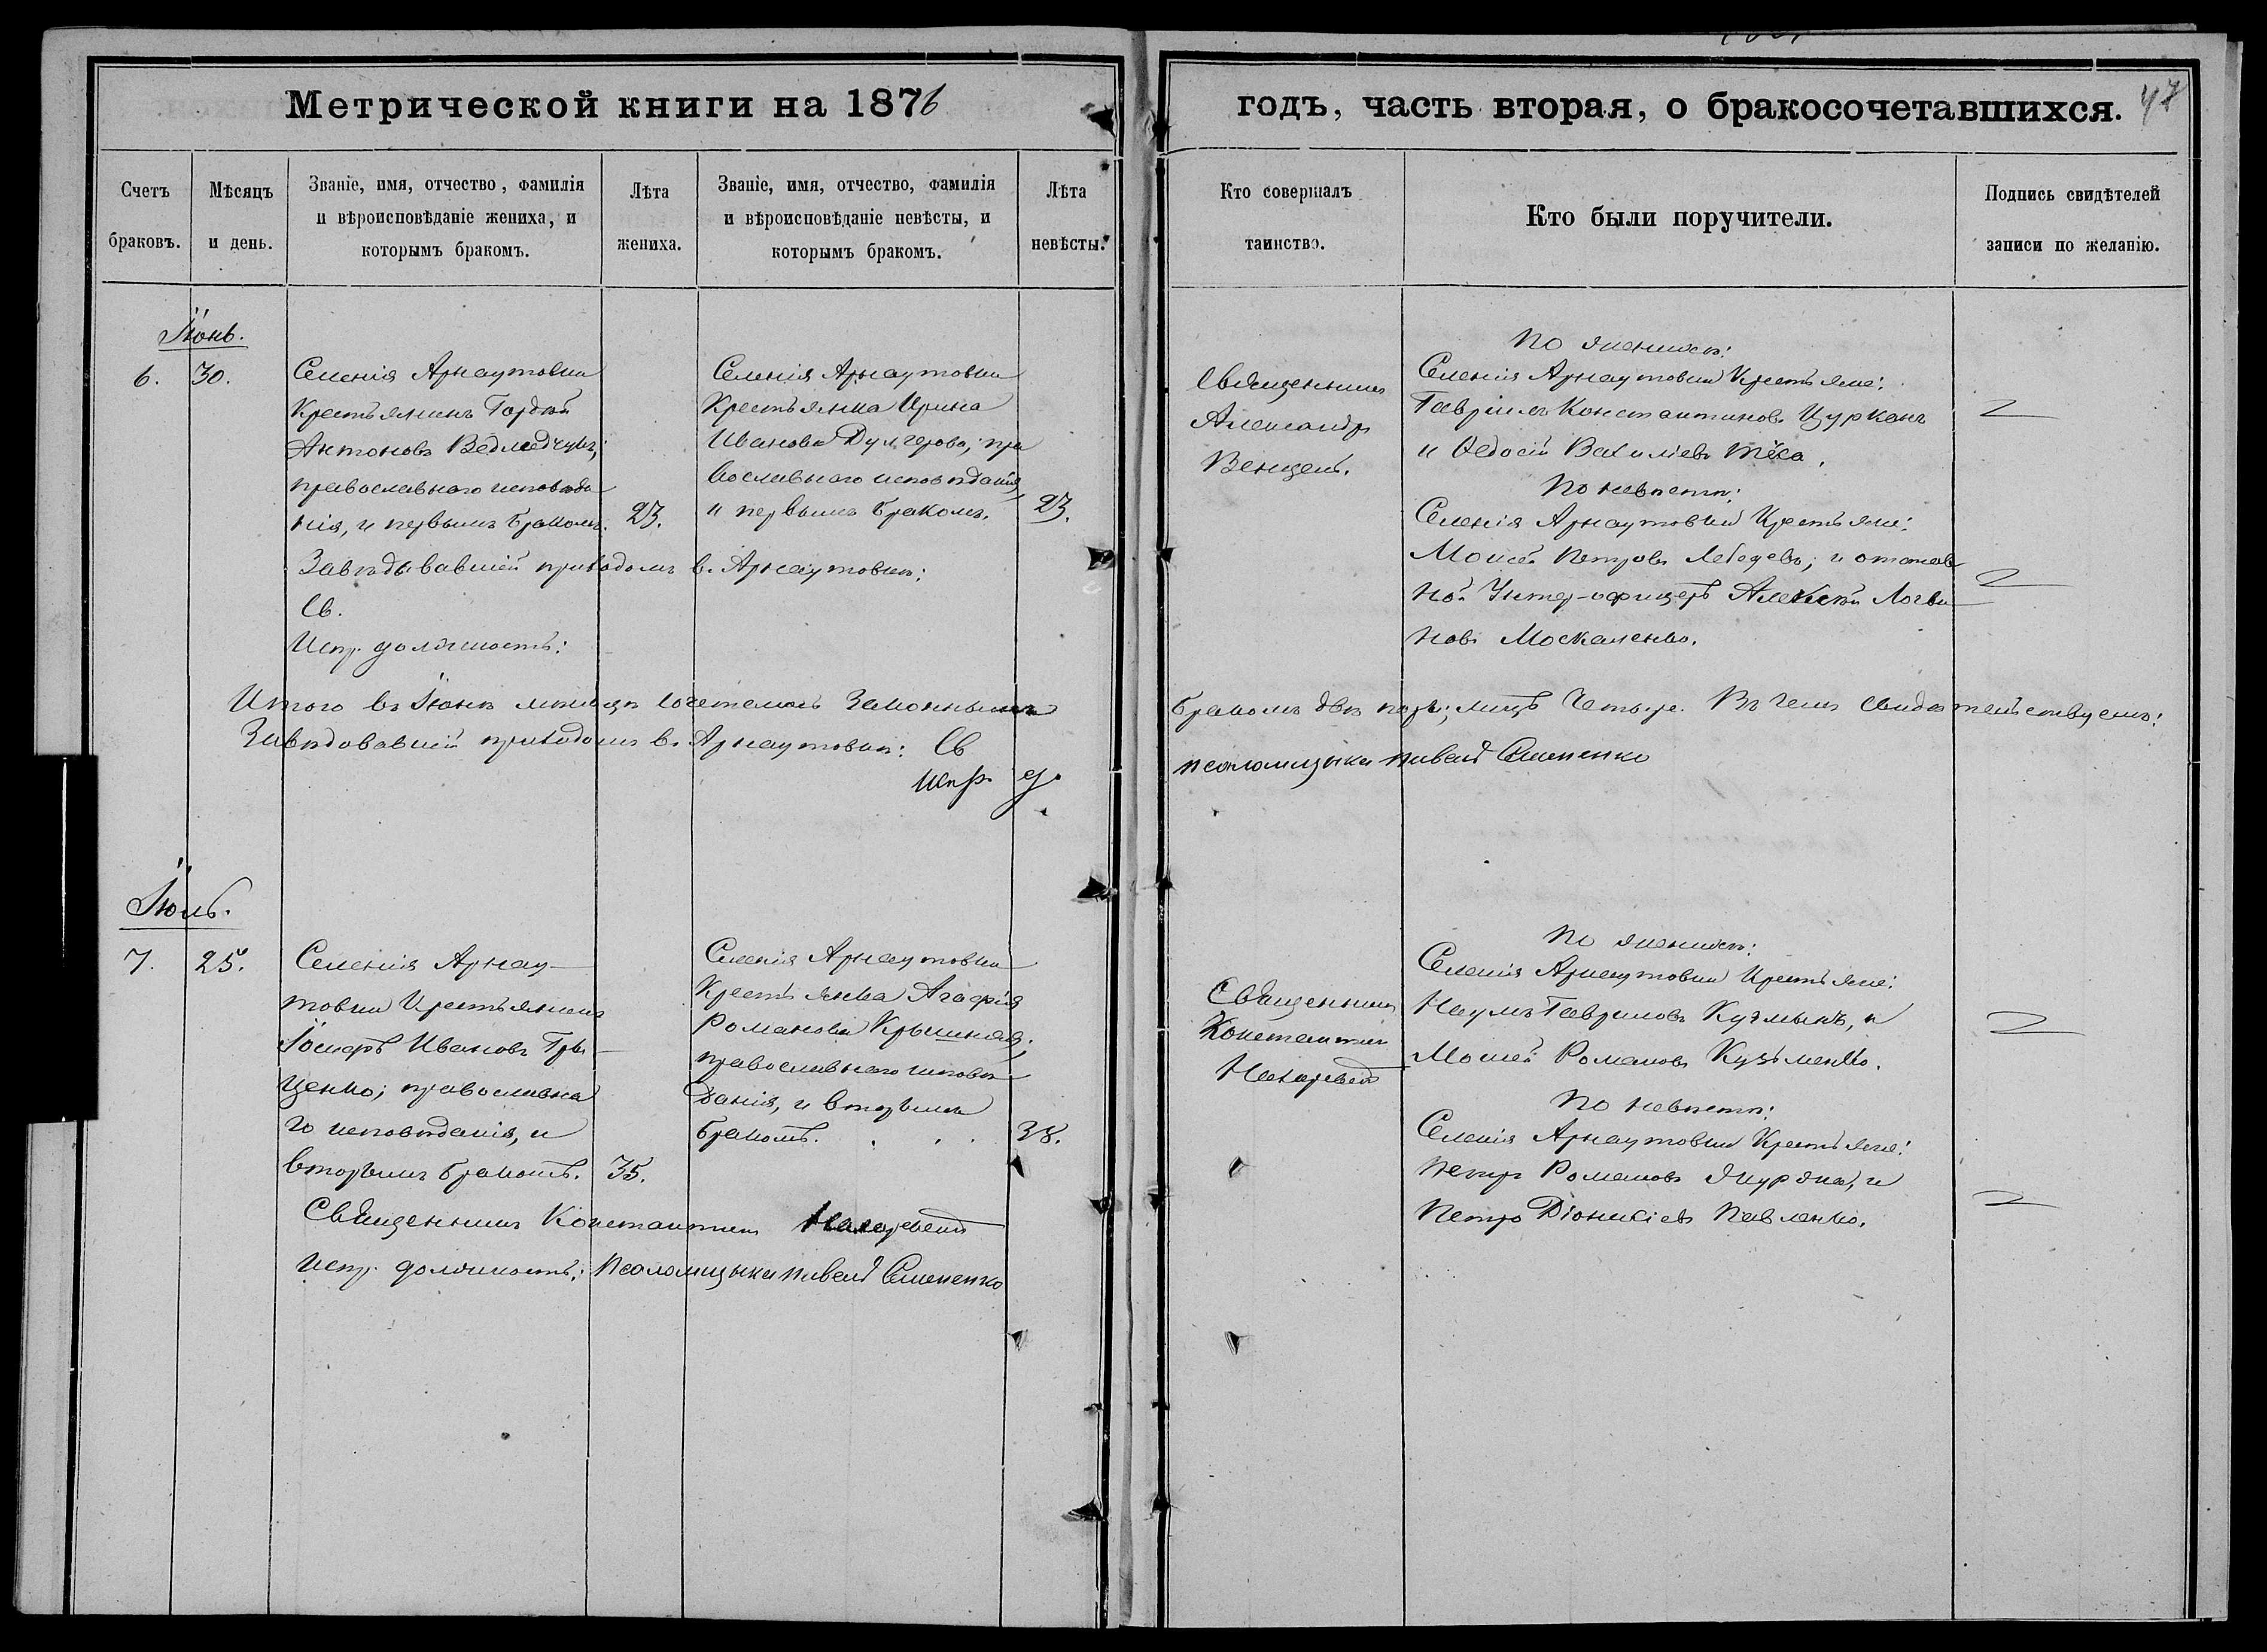 Метрической книги на 1876
годъ, часть вторая, о бракосочетавшихся. 47
Счетъ браковъ.
Мѣсяцъ и день.
Званіе, имя, отчество, фамилія
и вѣроисповѣданіе жениха, и
которымъ бракомъ.
Лѣта жениха.
Званіе, имя, отчество, фамилія
и вѣроисповѣданіе невѣсты, и
которымъ бракомъ.
Лѣта невѣсты.
Кто совершалъ таинство.
Кто были поручители.
Подпись свидѣтелей
записи по желанію.
Іюнь.
6.
30.
Селенія Арнаутовки
Крестьянинъ Гордѣй
Антоновъ Ведмедчукъ;
православного исповѣда
нія, и первымъ бракомъ.
23.
Селенія Арнаутовки
Крестьянка Ирина
Иванова Дулгерова, пра
вославного исповѣданія,
и первымъ бракомъ.
23.
Завѣдывавшій приходомъ в. Арнаутовки:
Св.
Испр. должность:
Священникъ
Александръ
Венцей.
По женихѣ:
Селенія Арнаутовки Крестьяне:
Гавріилъ Константиновъ Цурканъ
и Ѳедосій Василіевъ
По невѣстѣ:
Селенія Арнаутовки Крестьяне:
Моисей Петровъ Лебедевъ; и отстав
ной Унтер-офицеръ Алексѣй Логви
новъ Москаленко.
Итого въ Іюнѣ мѣсяцѣ сочеталось Законнымъ
бракомъ двѣ пары; лицъ Четыре. Въ чемъ свидѣтельствуемъ:
Завѣдовавшій приходомъ в. Арнаутовки: Св
испр. д.
псаломщика Павелъ Семененко
Іюль.
7.
25.
Селенія Арнау
товки Крестьянинъ
Іосифъ Ивановъ Гри
ценко; православна
го исповѣданія, и
вторымъ бракомъ.
35.
Селенія Арнаутовки
Крестьянка Агафія
Романова
православного исповѣ
данія, и вторымъ
бракомъ.
38.
Священникъ Константинъ
Испр. должность: Псаломщика Павелъ Семененко
Священникъ
Константинъ
По женихѣ:
Селенія Арнаутовки Крестьяне:
Наумъ Гавриловъ и
Моисей Романовъ Кузьменко.
По невѣстѣ:
Селенія Арнаутовки Крестьяне:
Петръ Романовъ и
Петръ Діонисіевъ Павленко.